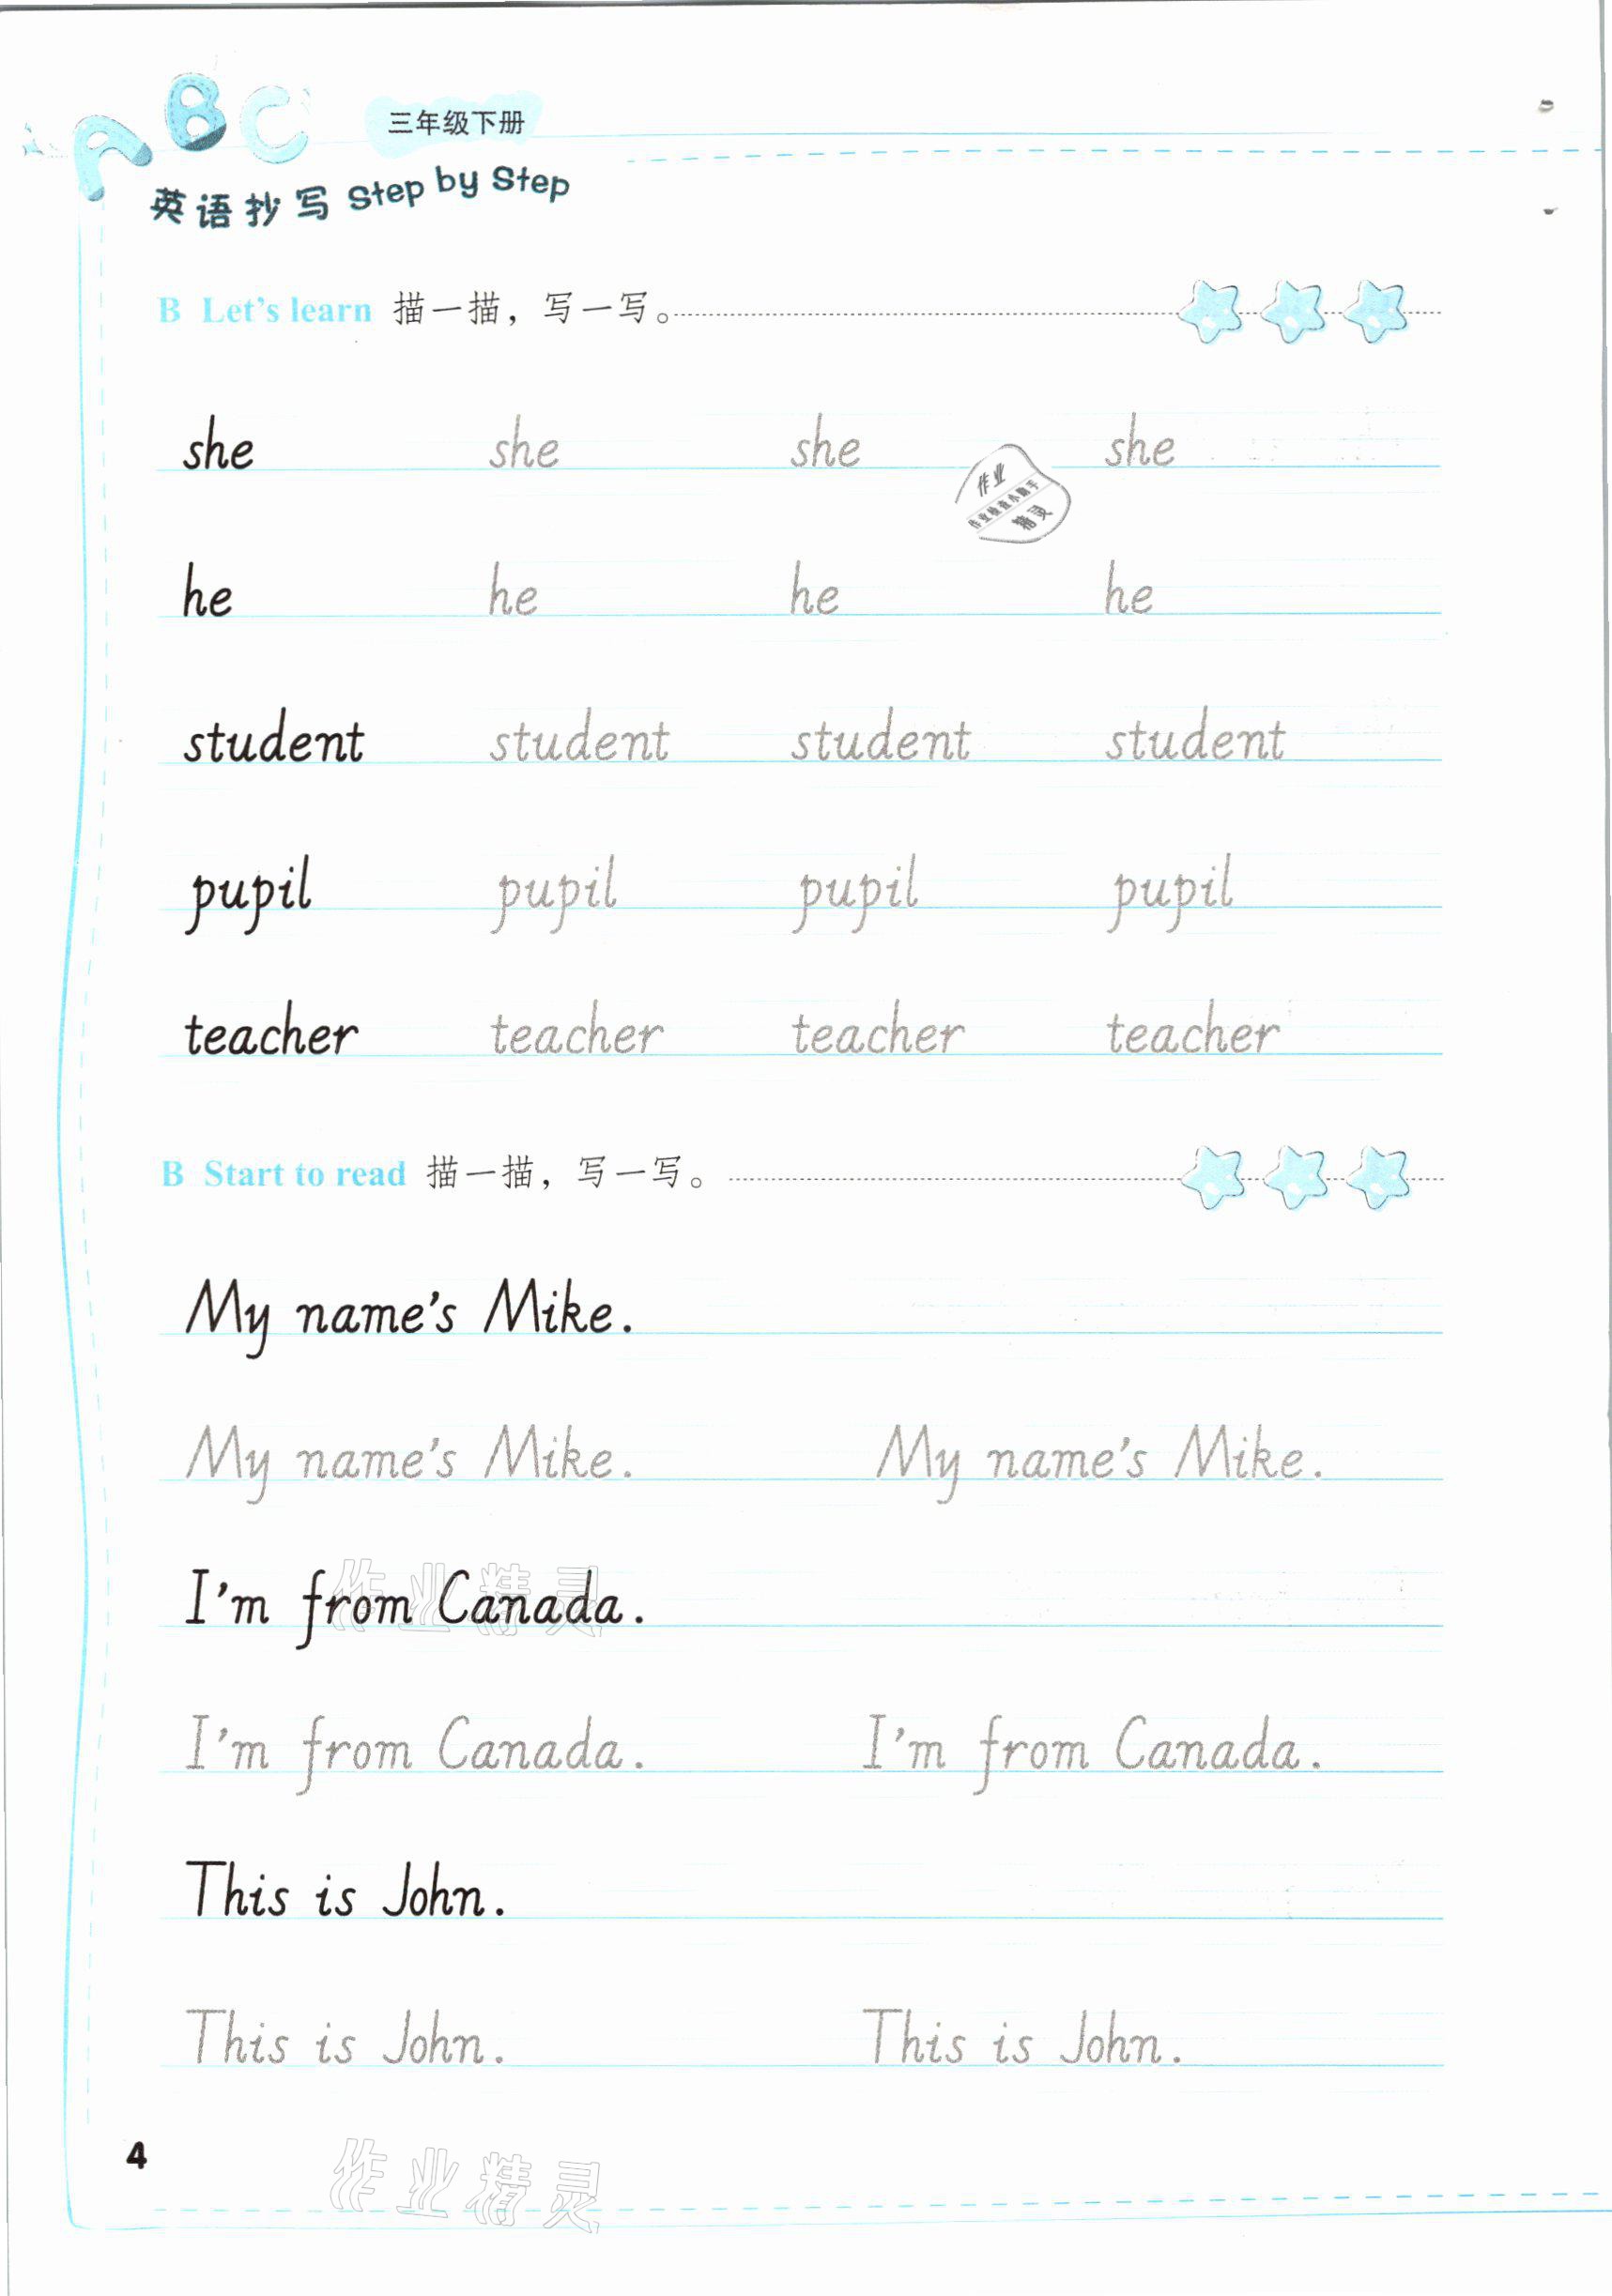 ABC
三年级下册
英语抄写 Step by Step
B Let's learn 描一描，写一写。
she she she she
作业
作业检查小助手
精灵
he he he he
student student student student
pupil pupil pupil pupil
teacher teacher teacher teacher
B Start to read 描一描，写一写。
My name's Mike.
My name's Mike. My name's Mike.
I'm from Canada.
作业精灵
I'm from Canada. I'm from Canada.
This is John.
This is John. This is John.
4
作业精灵